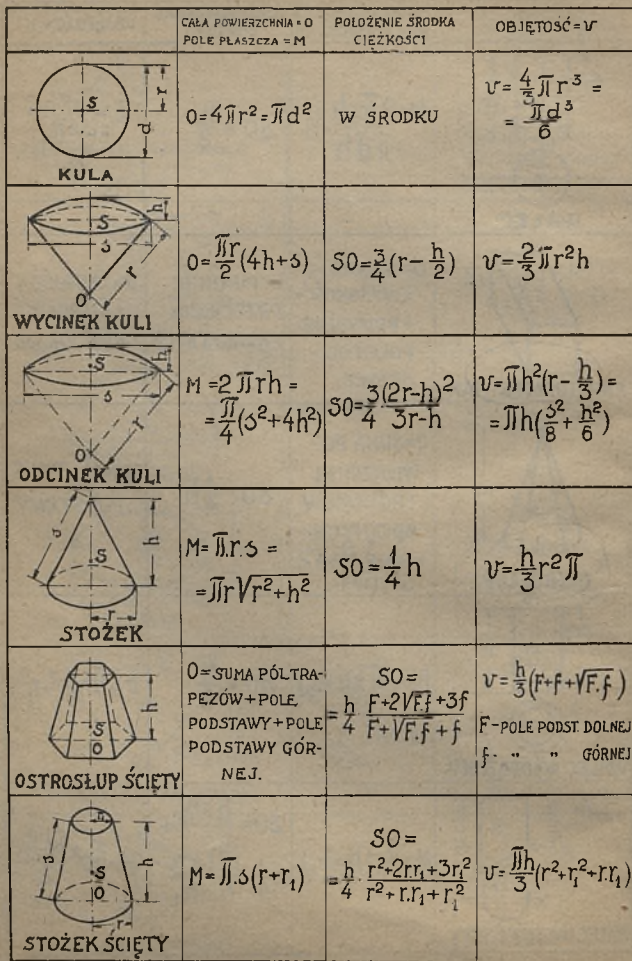 CAŁA POWIERZCHNIA = O
POLE PŁASZCZA = M
POŁOŻENIE ŚRODKA
CIĘŻKOŚCI
OBJĘTOŚĆ = V
S r d
KULA
O = 4πr² = πd²
W ŚRODKU
V = 4/3 πr³ =
= πd³/6
S h s r O
WYCINEK KULI
O = πr/2 (4h+s)
SO = 3/4 (r - h/2)
V = 2/3 πr²h
S h s r O
ODCINEK KULI
M = 2πrh =
= π/4 (s²+4h²)
SO = 3/4 (2r-h)²/3r-h
V = πh²(r - h/3) =
= πh(s²/8 + h²/6)
s S h r
STOŻEK
M = π.r.s =
= πr√(r²+h²)
SO = 1/4 h
V = h/3 r²π
S O h
OSTROSŁUP ŚCIĘTY
O = SUMA PÓL TRA-
PEZÓW + POLE
PODSTAWY + POLE
PODSTAWY GÓR-
NEJ.
SO =
= h/4 · F+2√F.f+3f / F+√F.f+f
V = h/3 (F+f+√F.f)
F - POLE PODST. DOLNEJ
f - " " GÓRNEJ
r₁ s S O h r
STOŻEK ŚCIĘTY
M = π.s(r+r₁)
SO =
= h/4 · r²+2rr₁+3r₁² / r²+r.r₁+r₁²
V = πh/3 (r²+r₁²+r.r₁)